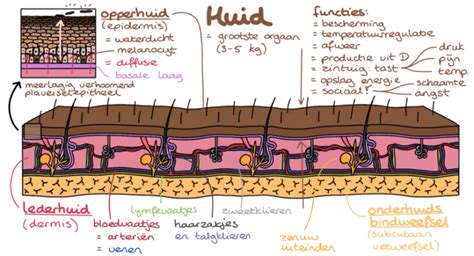 Huid
= grootste orgaan
(3-5 kg)
opperhuid
(epidermis)
= waterdicht
= melanocyt
= diffusie
= basale laag
meerlagig verhoornend
plaveiselepitheel
functies:
= bescherming
= temperatuurregulatie
= afweer
= productie vit D
= zintuig: tast
druk
pijn
temp.
= opslag energie
= sociaal?
schaamte
angst
lederhuid
(dermis)
bloedvaatjes
= arteriën
= venen
lymfevaatjes
haarzakjes
en talgklieren
zweetklieren
zenuw
uiteinden
onderhuids
bindweefsel
(subcutaan
vetweefsel)